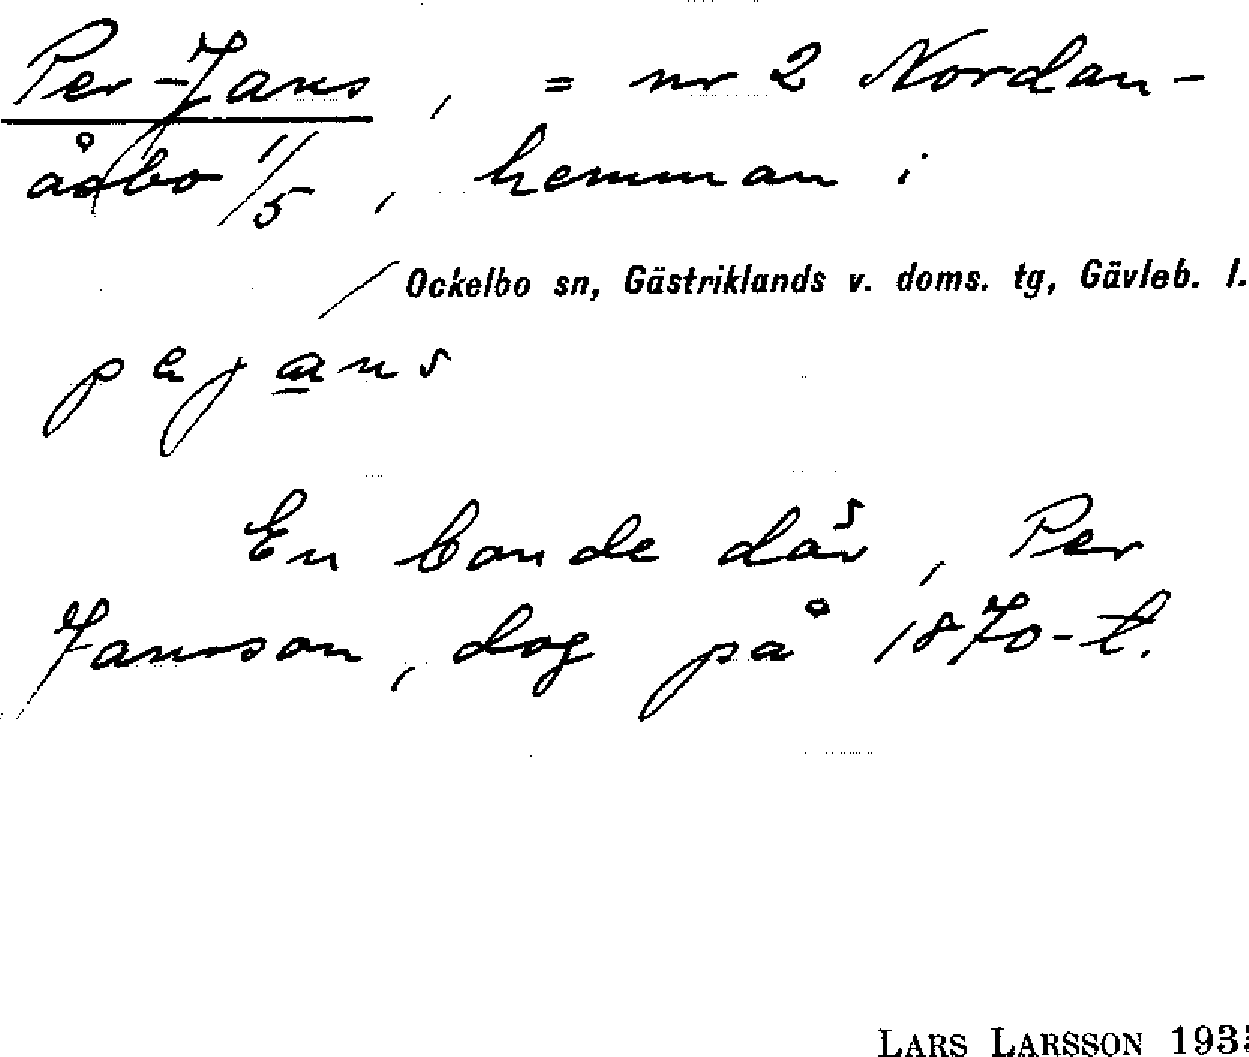 Per-Jans, = nr 2 Nordan-
åsbo 1/5, hemman i
Ockelbo sn, Gästriklands v. doms. tg, Gävleb. l.
pejans
En bonde där, Per
Jansson, dog på 1870-t.
LARS LARSSON 193